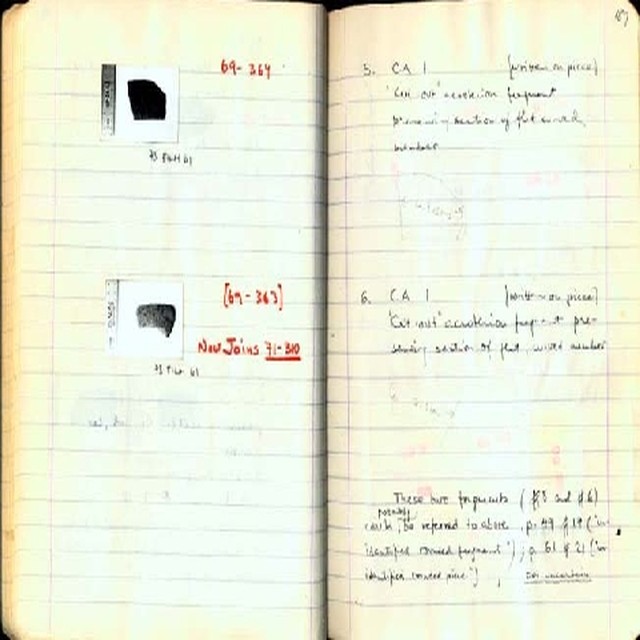 69-364
[69-363]
Now Joins 71-310
5. C.A. 1 [written on piece]
"Cut out" acroterion fragment
preserving section of flat curved
member
6. C.A. 1 [written on piece]
"Cut out" acroterion fragment pre-
serving section of flat, curved member
These two fragments (#5 and #6)
possibly
be referred to above, p. 49 # 19 ("un-
identified curved fragment"); p. 61 # 21 ("un-
identified curved piece")